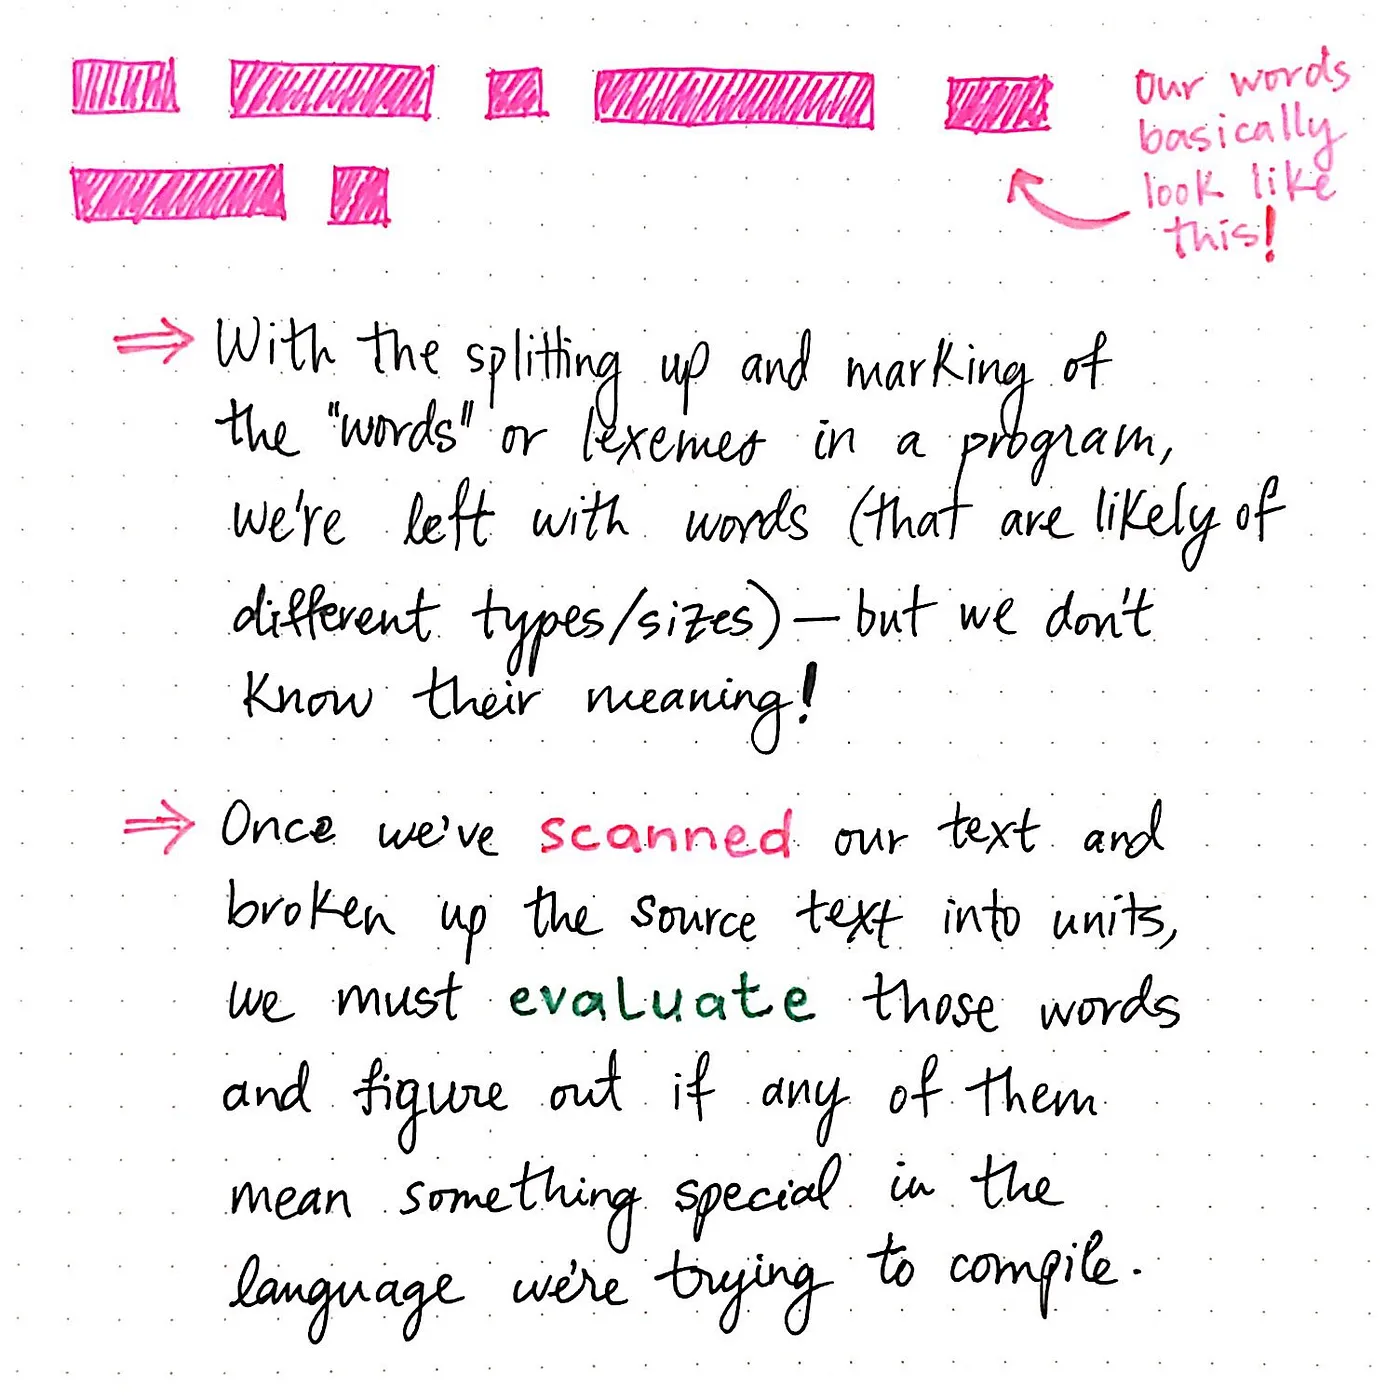 Our words
basically
look like
this!
With the splitting up and marking of
the "words" or lexemes in a program,
we're left with words (that are likely of
different types/sizes) — but we don't
know their meaning!
Once we've scanned our text and
broken up the source text into units,
we must evaluate those words
and figure out if any of them
mean something special in the
language we're trying to compile.